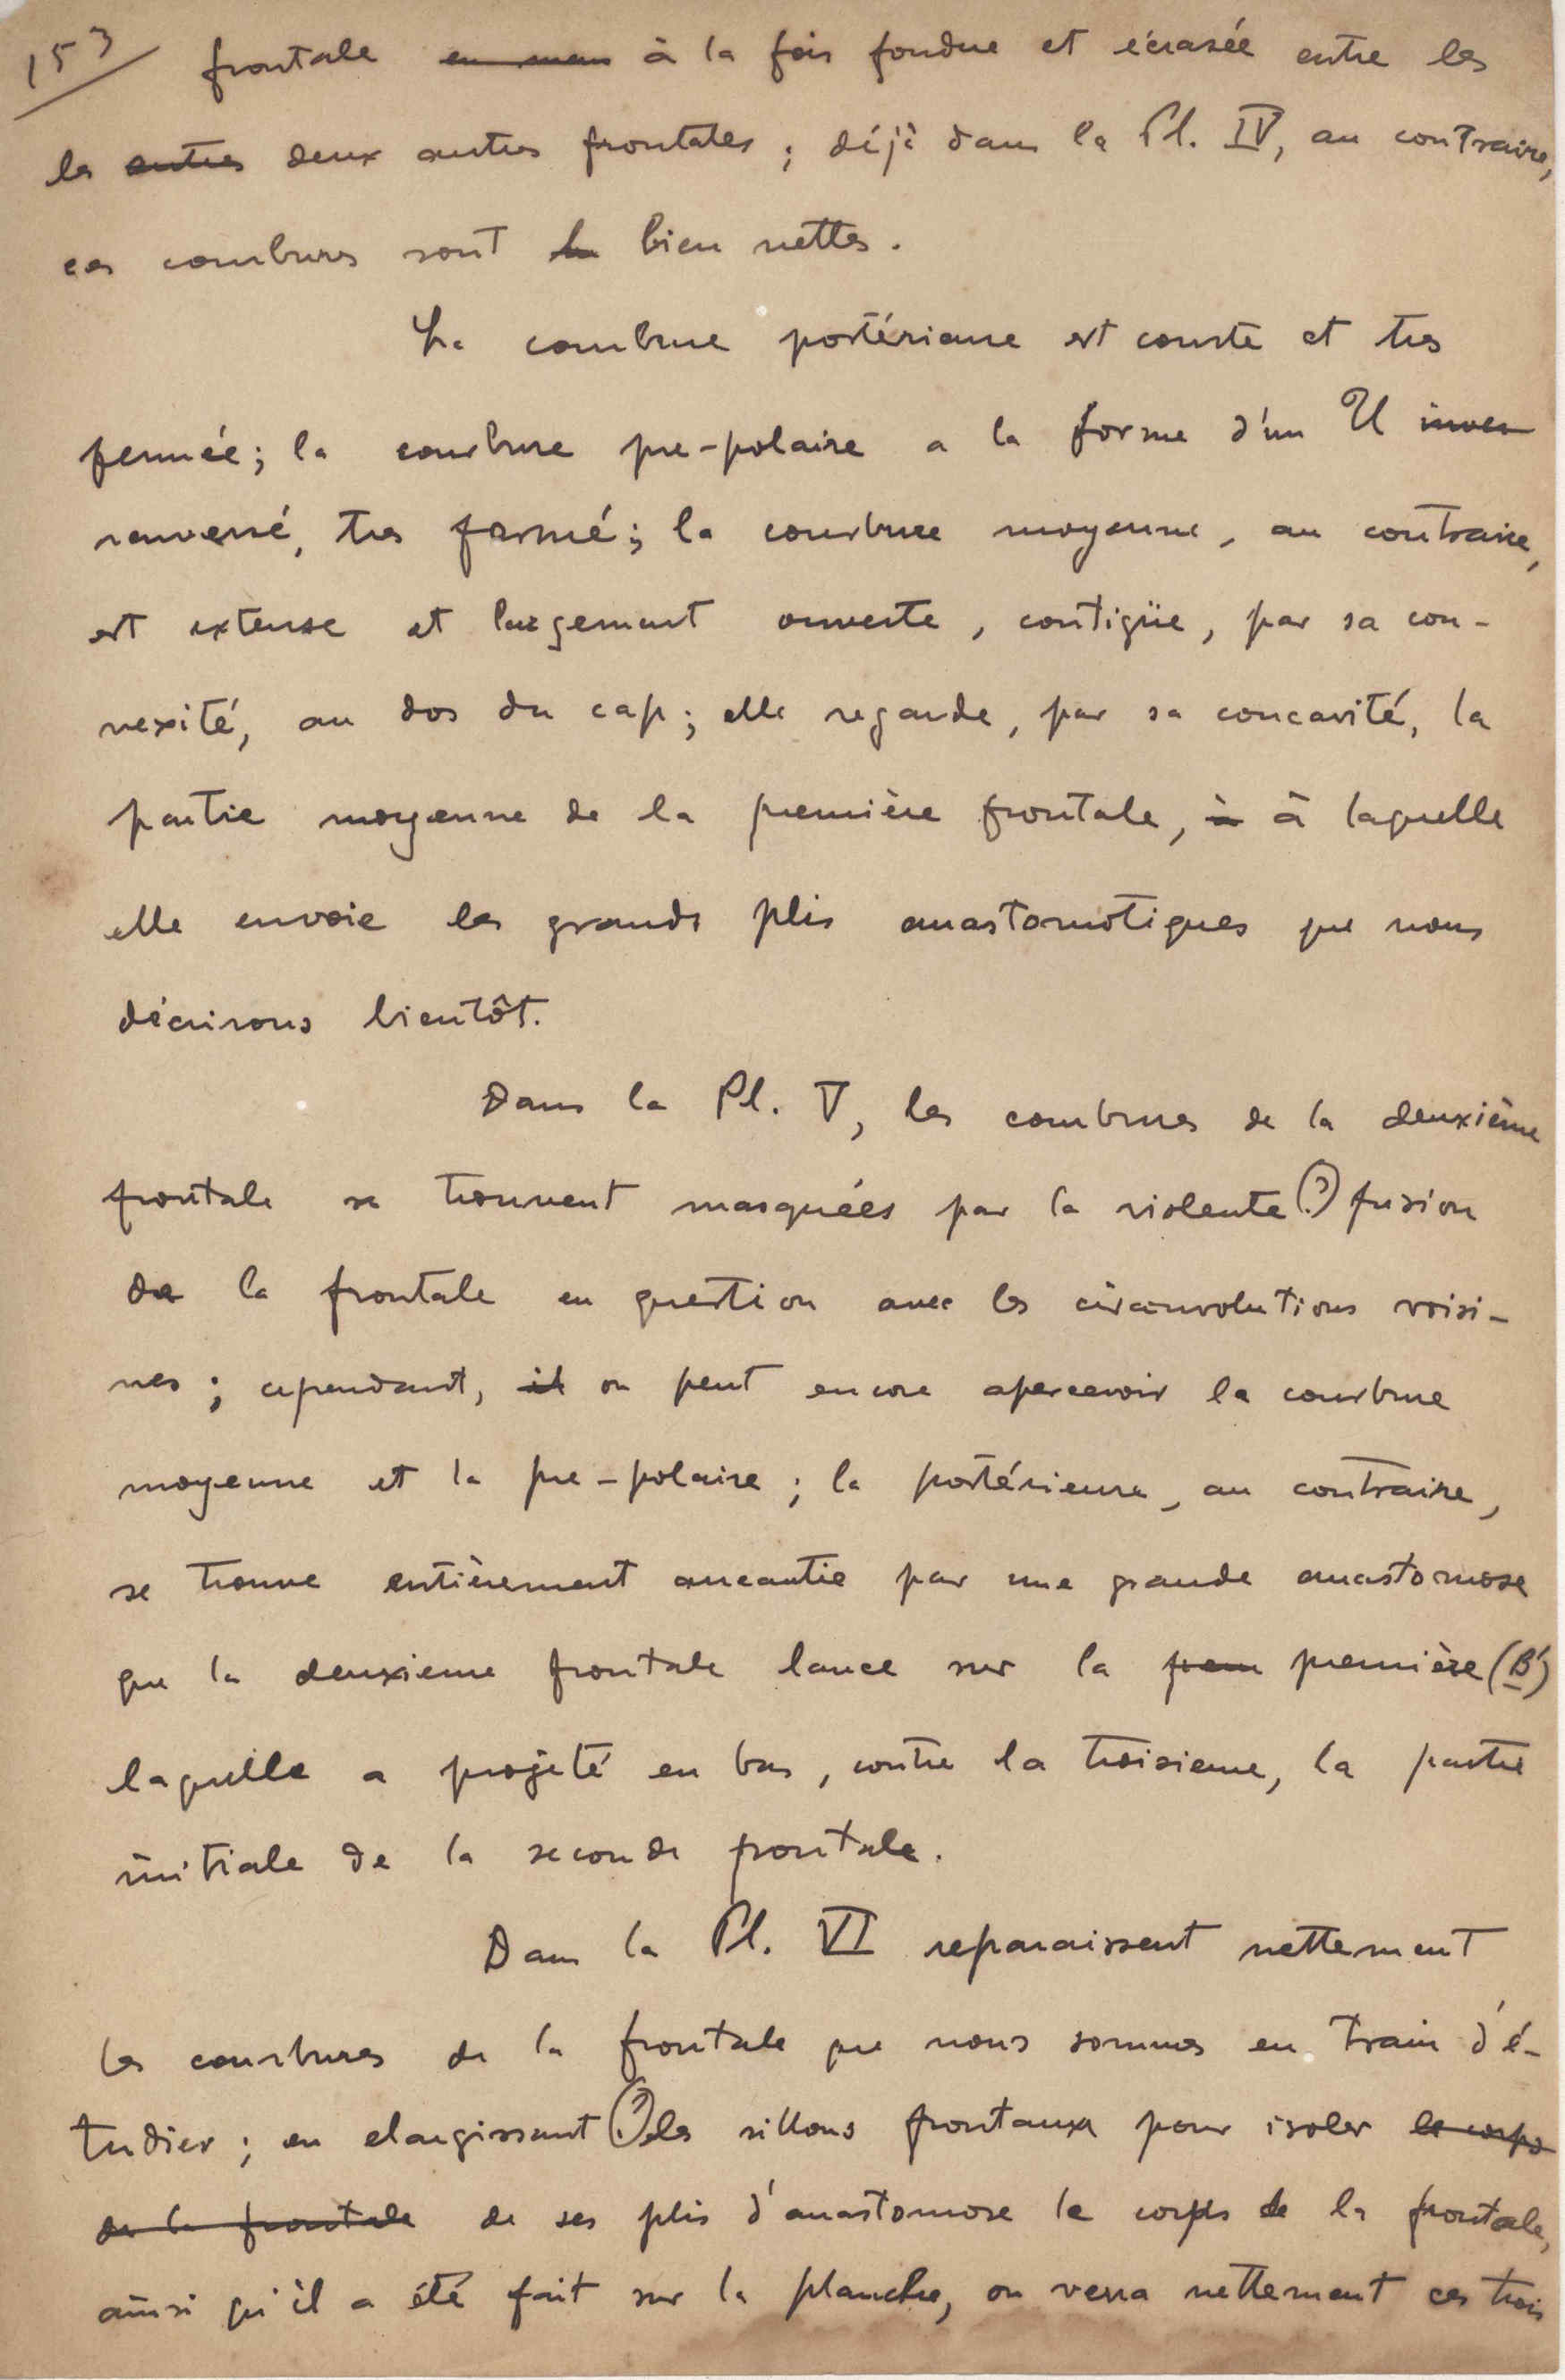 153 frontale ~~en man~~ à la fois fondue et écrasée entre les
les ~~autres~~ deux autres frontales ; déjà dans la Pl. IV, au contraire,
ces courbures sont ~~b~~ bien nettes.
La courbure postérieure est courte et tres
fermée; la courbure pre-polaire a la forme d'un U ~~inver~~
renversé, tres fermé; la courbure moyenne, au contraire,
est extense et largement ouverte, contigüe, par sa con-
vexité, au dos du cap; elle regarde, par sa concavité, la
partie moyenne de la première frontale, ~~à~~ à laquelle
elle envoie les grands plis anastomotiques que nous
décrirons bientôt.
Dans la Pl. V, les courbures de la deuxième
frontale se trouvent masquées par la violente (?) fusion
de la frontale en question avec les circonvolutions voisi-
nes ; cependant, ~~il~~ on peut encore apercevoir la courbure
moyenne et la pre-polaire ; la postérieure, au contraire,
se trouve entièrement aneantie par une grande anastomose
que la deuxieme frontale lance sur la ~~prem~~ première (B')
laquelle a projeté en bas, contre la troisieme, la partie
initiale de la seconde frontale.
Dans la Pl. VI reparaissent nettement
les courbures de la frontale que nous sommes en train d'é-
tudier ; en elargissant (?) les sillons frontaux pour isoler ~~le corps~~
~~de la frontale~~ de ses plis d'anastomose le corps de la frontale,
ainsi qu'il a été fait sur la planche, on verra nettement ces trois